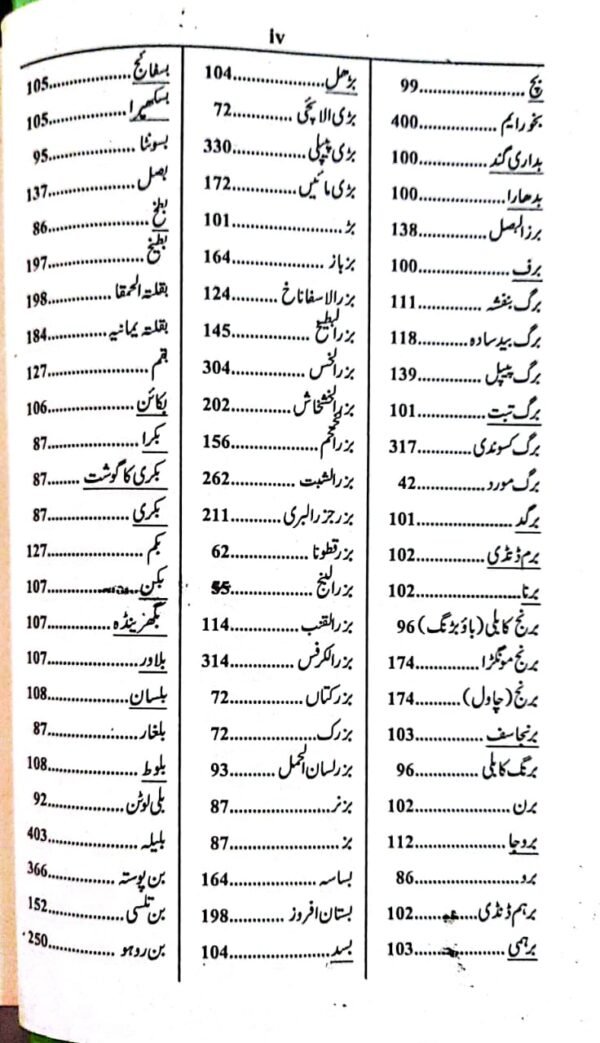 iv
بچ ..... 99
بخور ایم ..... 400
بداری گند ..... 100
بدھارا ..... 100
برز البصل ..... 138
برف ..... 100
برگ بنفشہ ..... 111
برگ بید سادہ ..... 118
برگ پیپل ..... 139
برگ تبت ..... 101
برگ کسوندی ..... 317
برگ مورد ..... 42
برگد ..... 101
برم ڈنڈی ..... 102
برنا ..... 102
برنج کابلی (باؤبڑنگ) 96
برنج مونگڑا ..... 174
برنج (چاول) ..... 174
برنجاسف ..... 103
برنگ کابلی ..... 96
برن ..... 102
بروجا ..... 112
برو ..... 86
برہم ڈنڈی ..... 102
برہمی ..... 103
بڑھل ..... 104
بڑی الائچی ..... 72
بڑی پیپلی ..... 330
بڑی مائیں ..... 172
بڑ ..... 101
بزباز ..... 164
بزر الاسفاناخ ..... 124
بزر البطیخ ..... 145
بزر الخس ..... 304
بزر الخشخاش ..... 202
بزر الخمخم ..... 156
بزر الشبت ..... 262
بزر جزر البری ..... 211
بزر قطونا ..... 62
بزر البنج ..... 55
بزر القنب ..... 114
بزر الکرفس ..... 314
بزر کتاں ..... 72
بزرک ..... 72
بزر لسان الحمل ..... 93
بزنر ..... 87
بز ..... 87
بساسہ ..... 164
بستان افروز ..... 198
بسد ..... 104
بسفائج ..... 105
بسکھپرا ..... 105
بسونٹا ..... 95
بصل ..... 137
بطخ ..... 86
بطیخ ..... 197
بقلتہ الحمقا ..... 198
بقلتہ یمانیہ ..... 184
بقم ..... 127
بکائن ..... 106
بکرا ..... 87
بکری کا گوشت ..... 87
بکری ..... 87
بکم ..... 127
بکن ..... 107
بگھرینڈہ ..... 107
بلاور ..... 107
بلسان ..... 108
بلغار ..... 87
بلوط ..... 108
بلی لوٹن ..... 92
بلیلہ ..... 403
بن پوستہ ..... 366
بن تلسی ..... 152
بن روہو ..... 250